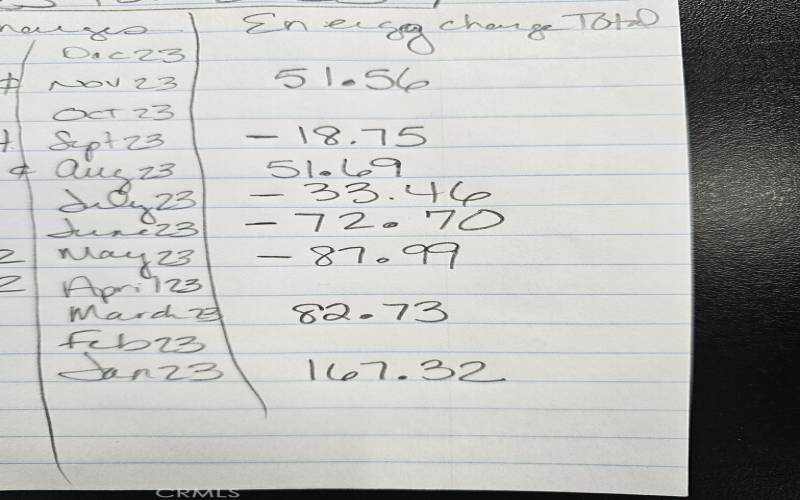 Energy change Total
Dec 23
Nov 23 51.56
Oct 23
Sept 23 - 18.75
Aug 23 51.69
July 23 - 33.46
June 23 - 72.70
May 23 - 87.99
2 April 23
March 23 82.73
Feb 23
Jan 23 167.32
CRMLS